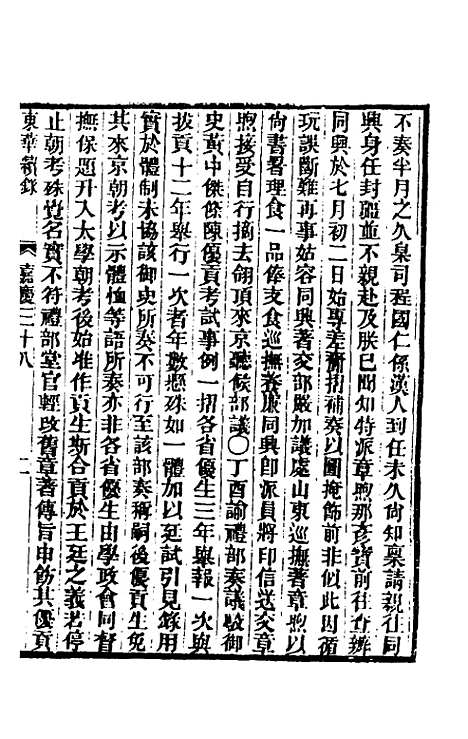 不奏半月之久臬司程國仁係漢人到任未久尙知稟請親往同
興身任封疆並不親赴及朕已聞知特派章煦那彥寶前往查辦
同興於七月初二日始專差齎摺補奏以圖掩飾前非似此因循
玩誤斷難再事姑容同興著交部嚴加議處山東巡撫著章煦以
尙書署理食一品俸支食巡撫養廉同興卽派員將印信送交章
煦接受自行摘去翎頂來京聽候部議〇丁酉諭禮部奏議駁御
史黃中傑條陳優貢考試事例一摺各省優生三年舉報一次與
拔貢十二年舉行一次者年數懸殊如一體加以廷試引見錄用
實於體制未協該御史所奏不可行至該部奏稱嗣後優貢生免
其來京朝考以示體恤等語所奏亦非各省優生由學政會同督
撫保題升入太學朝考後始准作貢生斯合貢於王廷之義若停
止朝考殊覺名實不符禮部堂官輕改舊章著傳旨申飭其優貢
東華續錄 嘉慶三十八 二